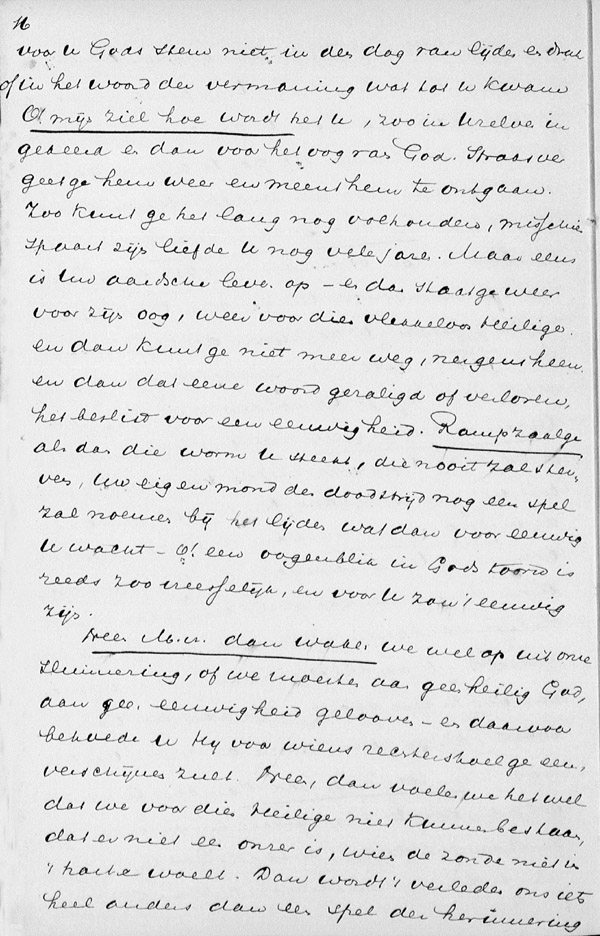 16
voor u Gods stem niet, in den dag van lijden en druk
of in het woord der vermaning wat tot u kwam
O! mijn ziel hoe wordt het u, zoo in u zelve in
gekeerd en dan voor het oog van God. Straks ver
geet ge hem weer en meent hem te ontgaan.
Zoo kunt ge het lang nog volhouden, misschien
spaart zijn liefde u nog vele jaren. Maar eens
is uw aardsche leven op – en dan staat ge weer
voor zijn oog, weer voor dien vlekkeloos Heilige
en dan kunt ge niet meer weg, nergens heen
en dan dat eene woord gezaligd of verloren,
het beslist voor een eeuwigheid. Rampzaalge
als dan die worm u steekt, die nooit zal ster-
ven, uw eigen mond den doodstrijd nog een spel
zal noemen bij het lijden wat dan voor eeuwig
u wacht – O! een oogenblik in Gods toorn is
reeds zoo vreesselijk, en voor u zou 't eeuwig
zijn.
Neen M.v. dan waken we wel op uit onze
sluimering, of we moesten aan geen heilig God,
aan geen eeuwigheid gelooven – en daarvoor
behoede u Hij voor wiens rechterstoel ge eens
verschijnen zult. Neen, dan voelen we het wel
dat we voor dien Heilige niet kunnen bestaan,
dat er niet een onzer is, wien de zonde niet in
't harte woelt. Dan wordt 't verleden ons iets
heel anders dan een spel der herinnering